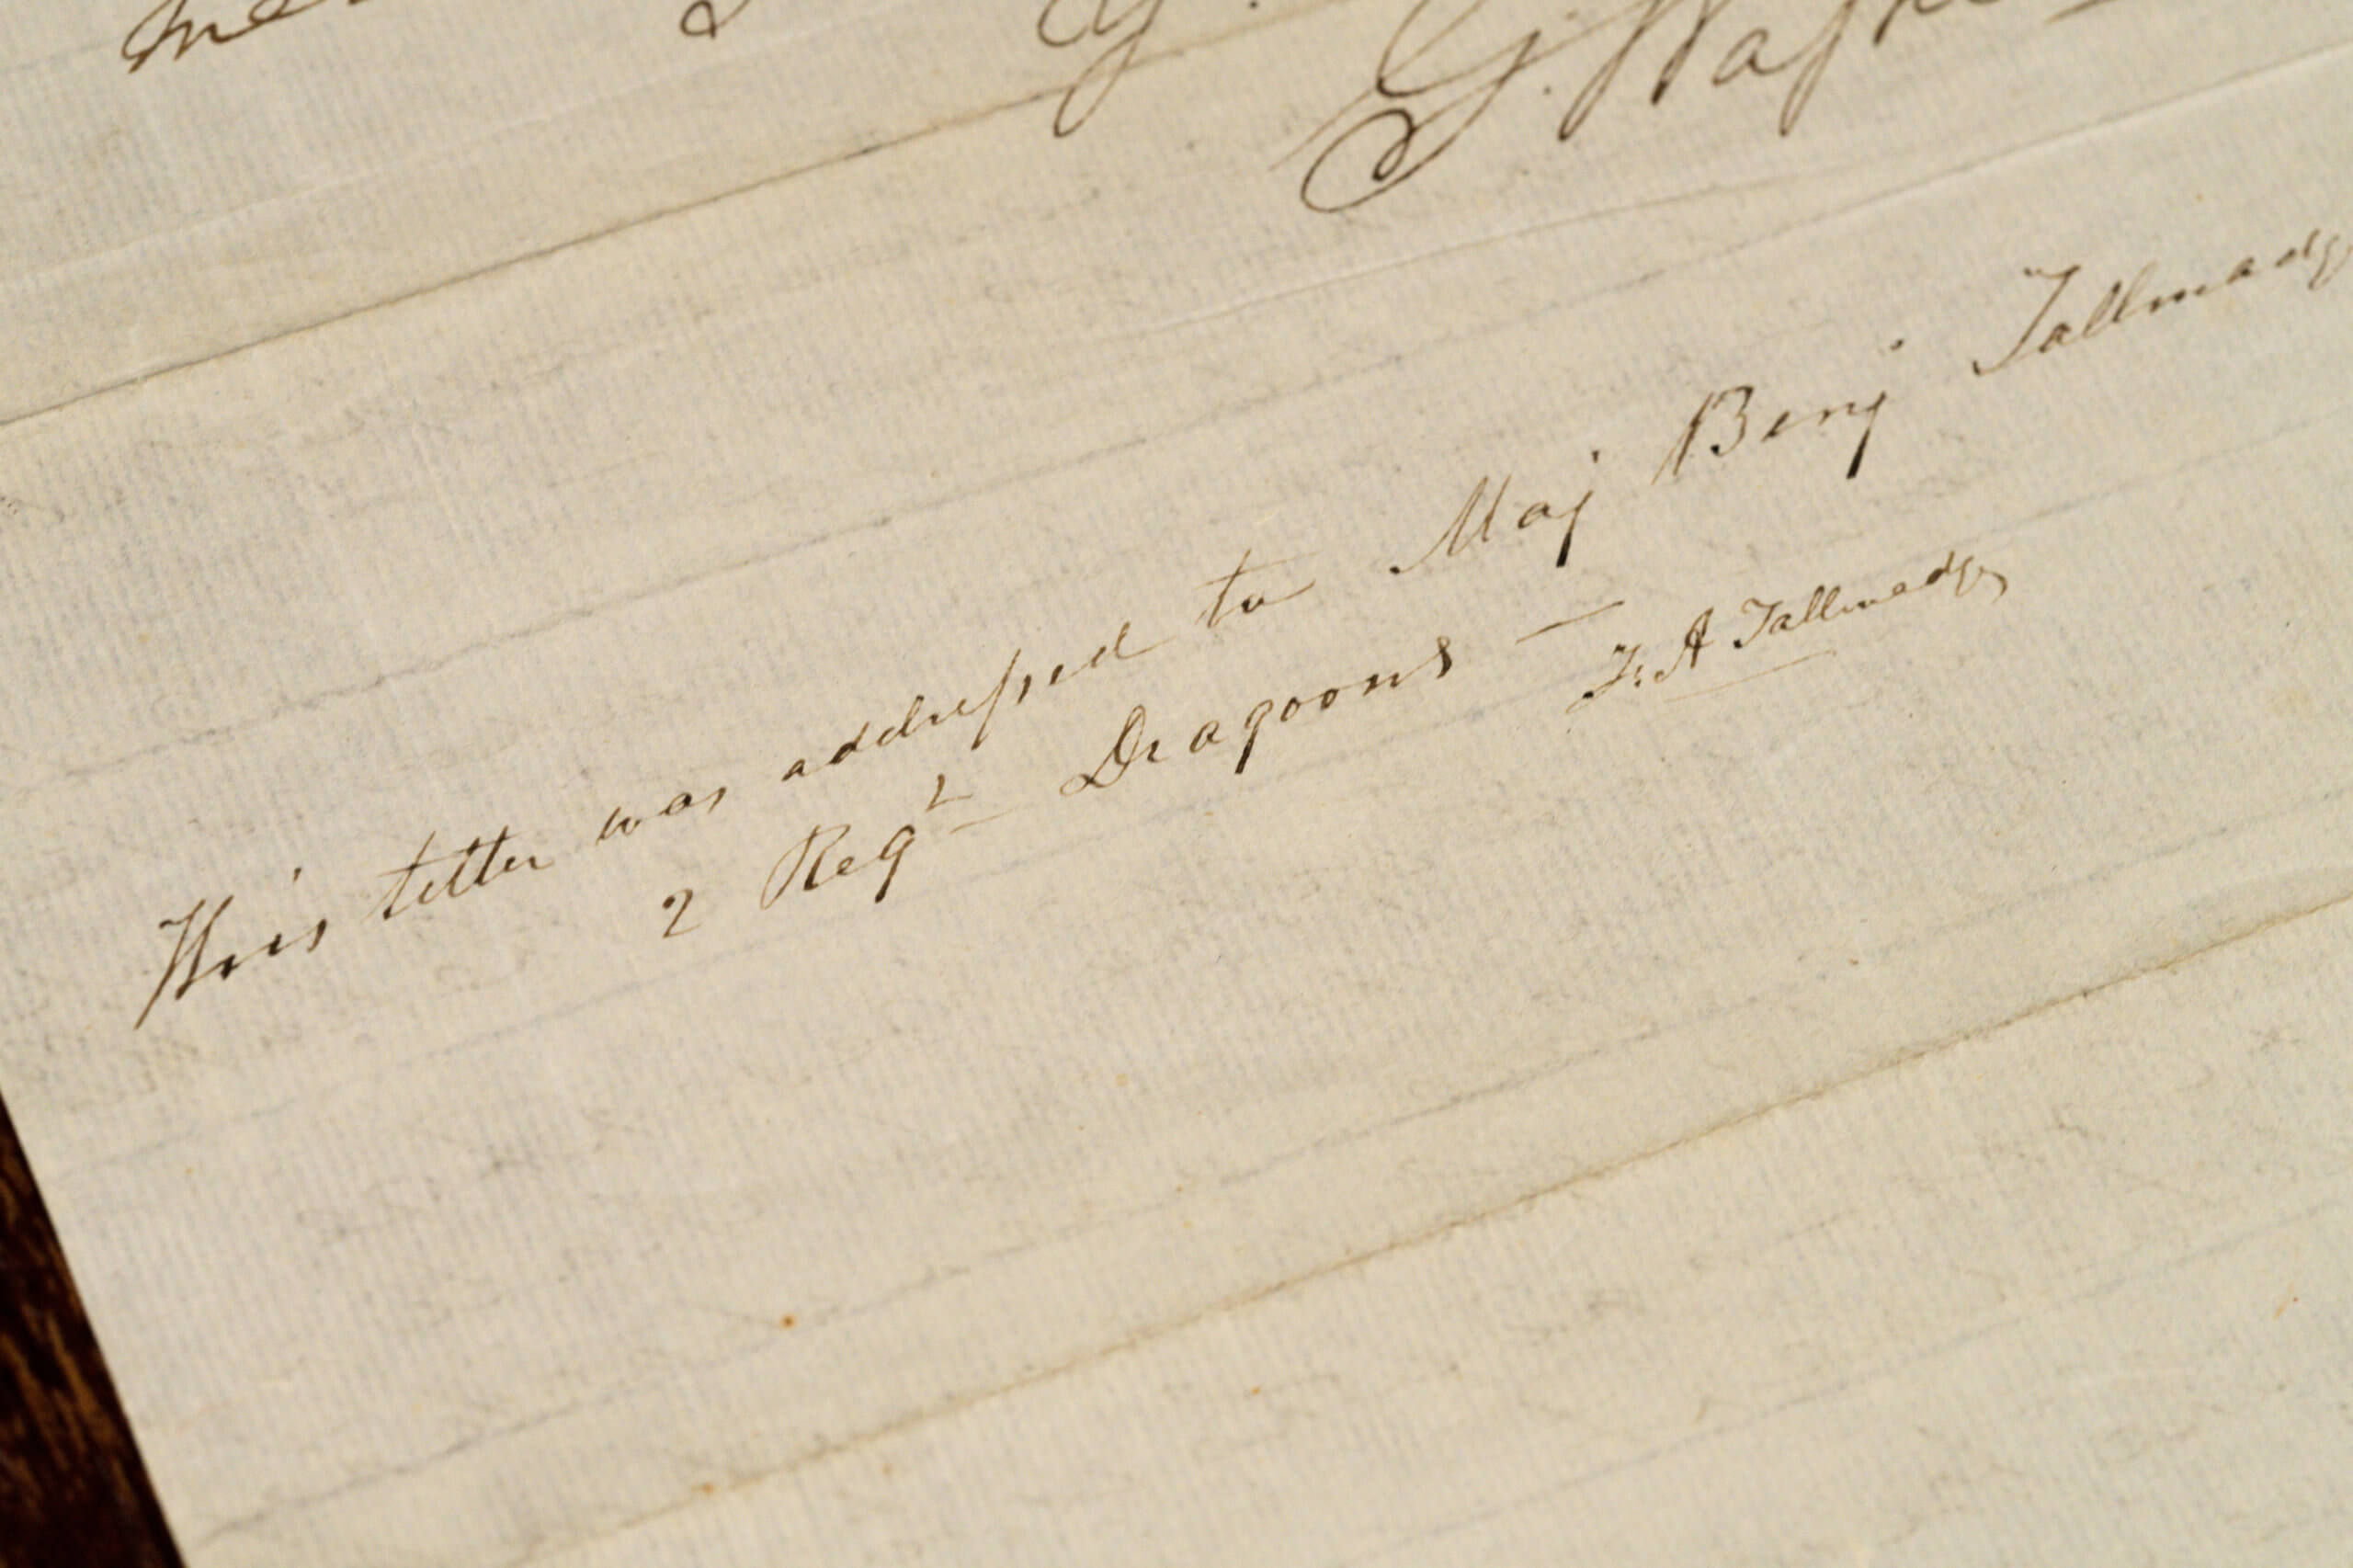 G. Wash
This letter was addressed to Maj Benj Tallmadge
2 Regt Dragoons —
F. A Tallmadge